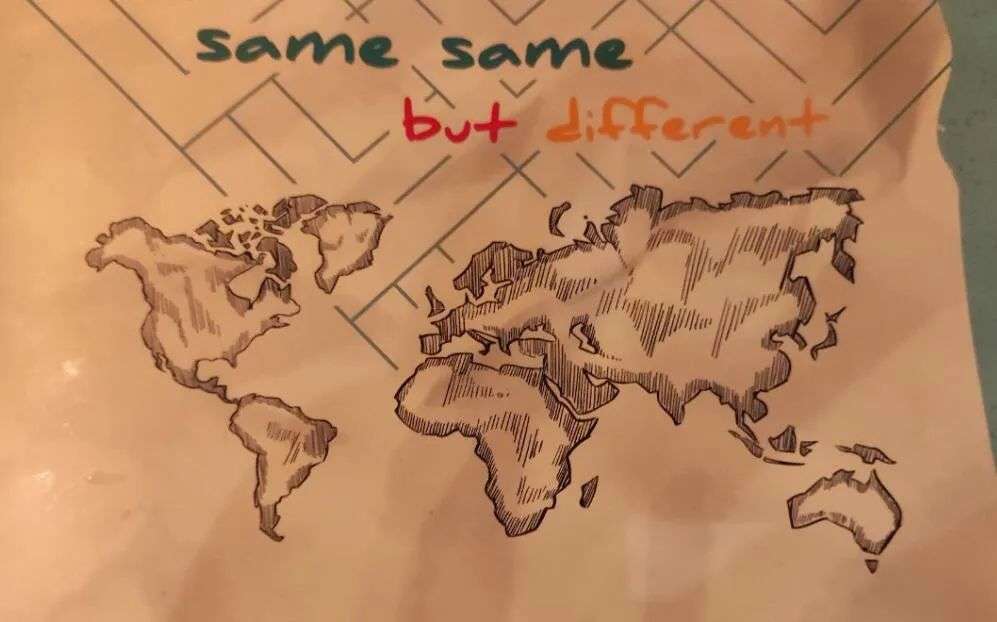 same same
but different